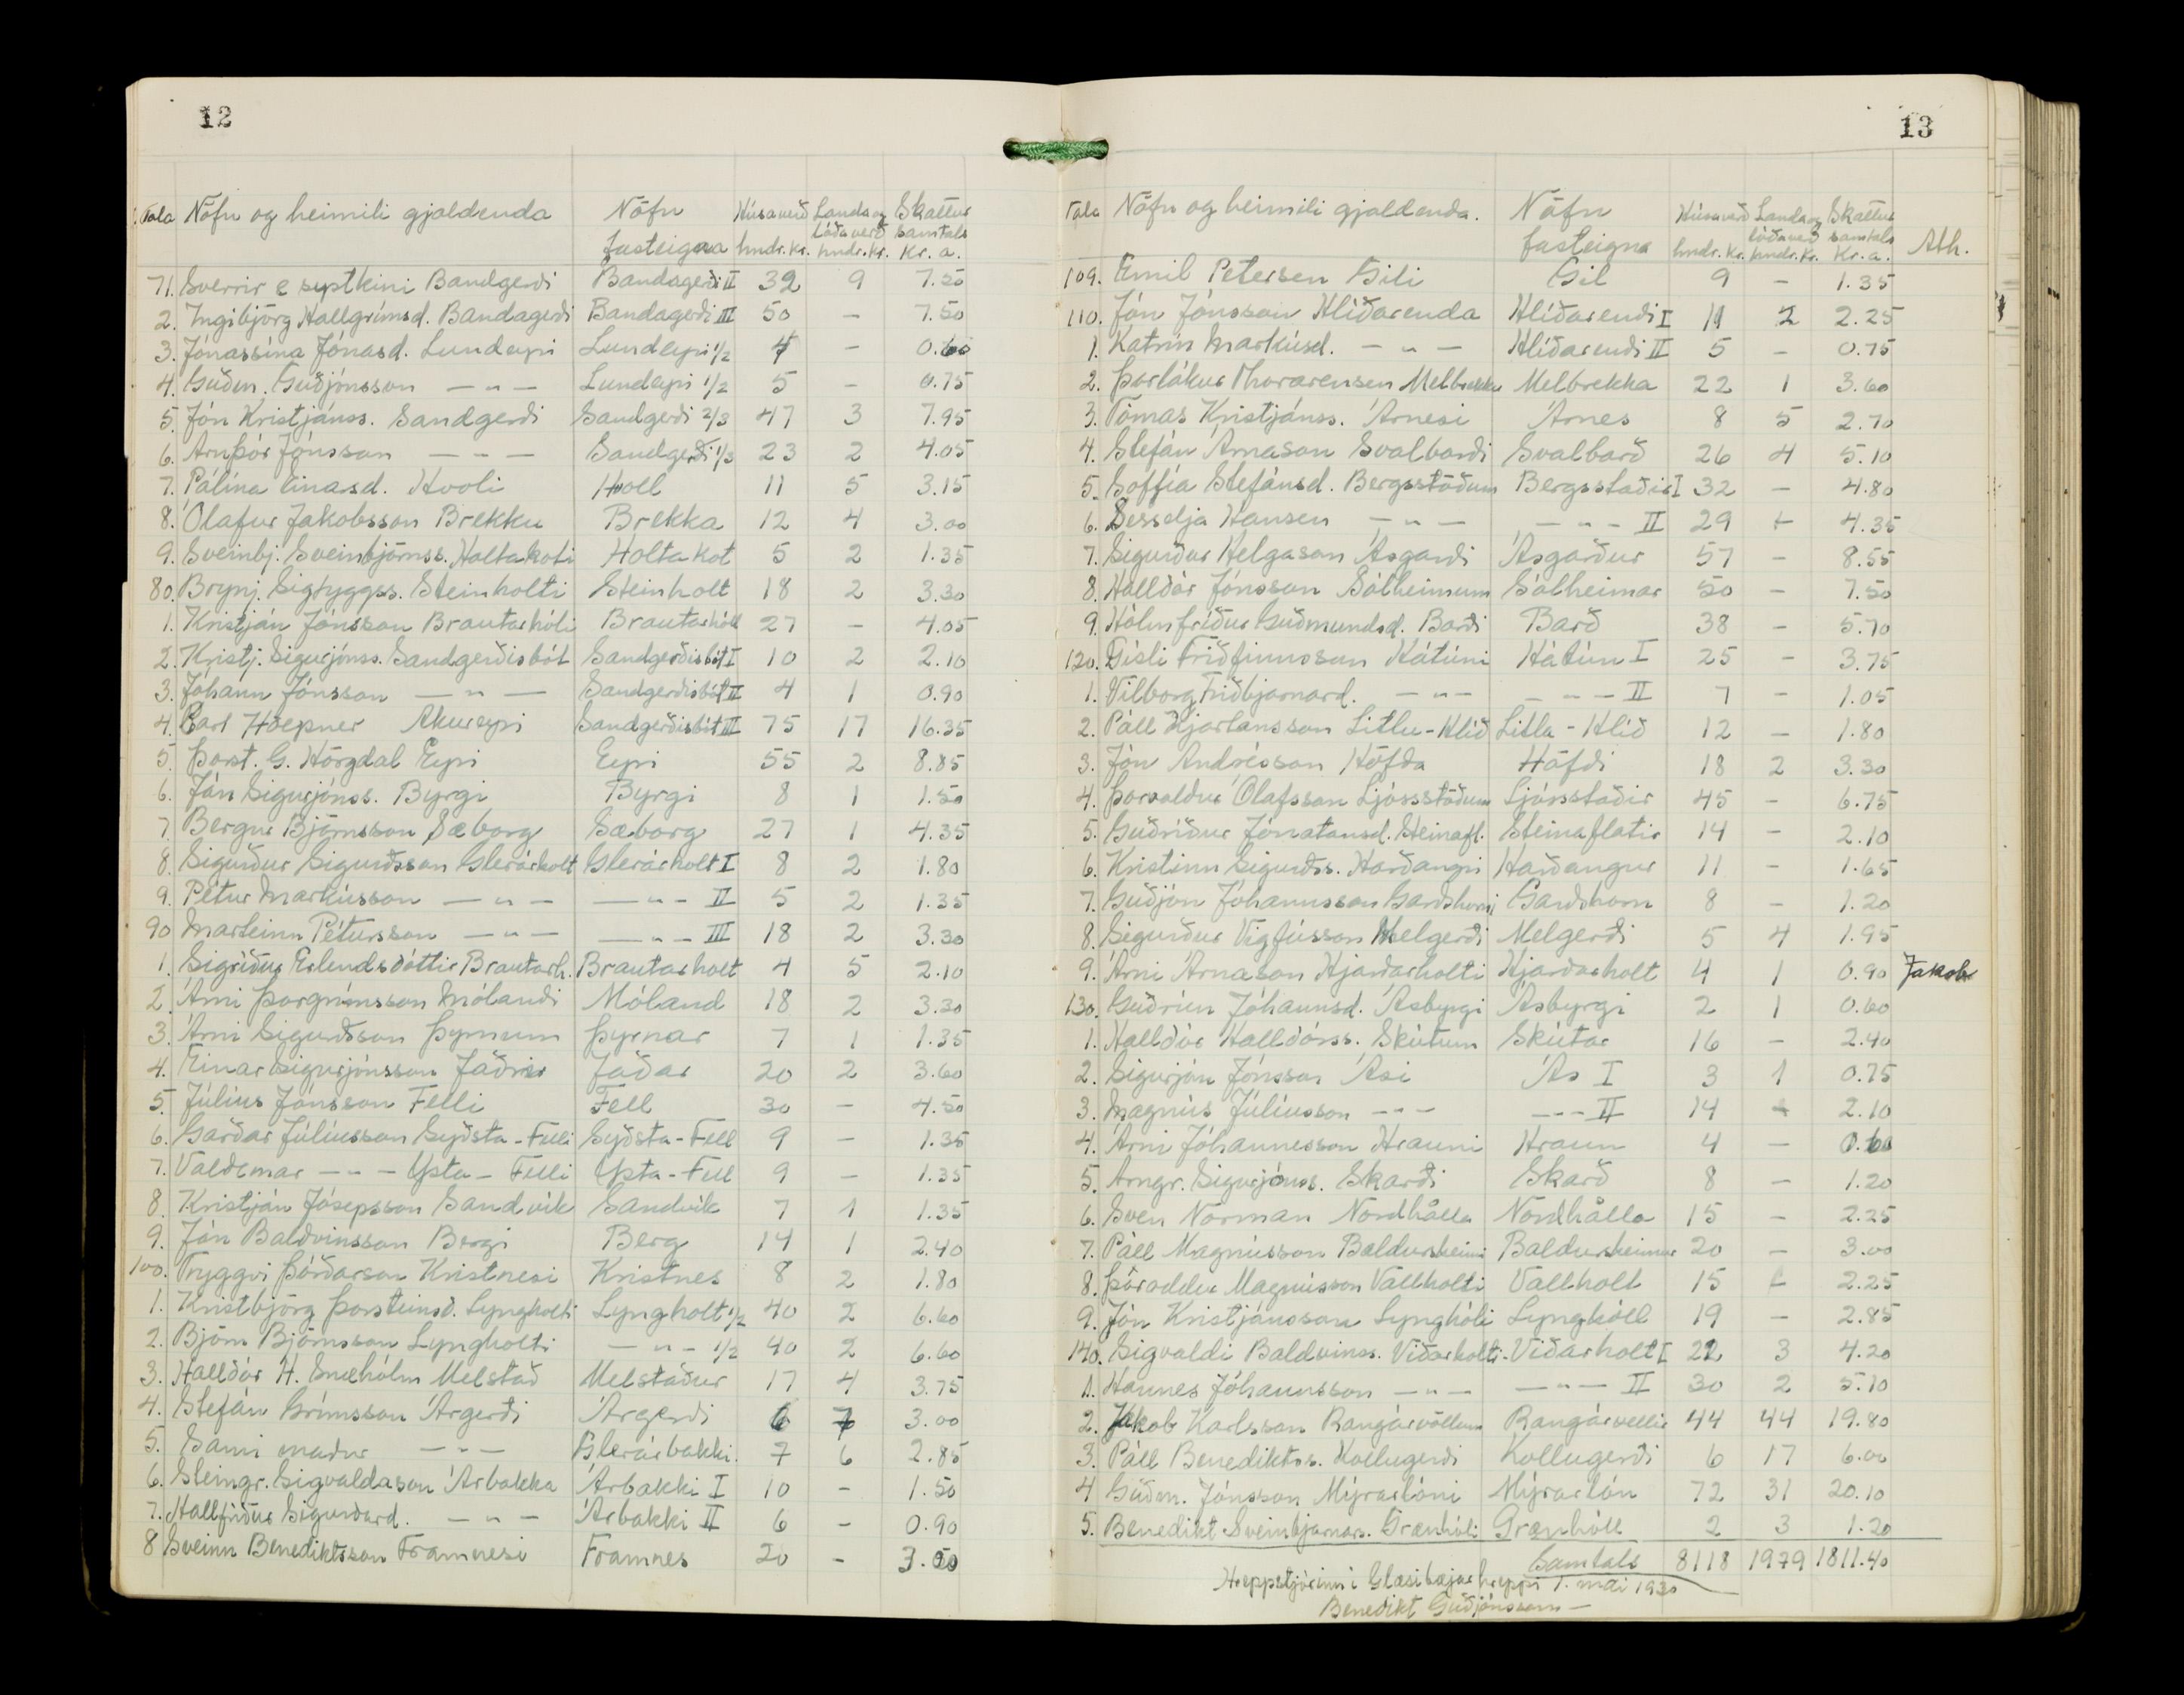 12
Tala Nöfn og heimili gjaldenda Nöfn fasteigna Húsaverð hndr. kr. Landa og lóðaverð hndr. kr. Skattur samtals Kr. a.
71. Sverrir & systkini Bandgerði Bandagerði II 32 9 7.50
2. Ingibjörg Hallgrímsd. Bandagerði Bandagerði III 50 – 7.50
3. Jónassína Jónasd. Lundeyri Lundeyri 1/2 4 – 0.60
4. Guðm. Guðjónsson — " — Lundeyri 1/2 5 – 0.75
5. Jón Kristjánss. Sandgerði Sandgerði 2/3 47 3 7.95
6. Arnþór Jónsson — " — Sandgerði 1/3 23 2 4.05
7. Pálína Einasd. Hvoli Hvoll 11 5 3.15
8. Ólafur Jakobsson Brekku Brekka 12 4 3.00
9. Sveinbj. Sveinbjörnss. Holtakoti Holtakot 5 2 1.35
80. Brynj. Sigtryggss. Steinholti Steinholt 18 2 3.30
1. Kristján Jónsson Brautarhóli Brautarhóll 27 – 4.05
2. Kristj. Sigurjónss. Sandgerðisbót Sandgerðisbót I 10 2 2.10
3. Jóhann Jónsson — " — Sandgerðisbót II 4 1 0.90
4. Carl Höepner Akureyri Sandgerðisbót III 75 17 16.35
5. Þorst. G. Hörgdal Eyri Eyri 55 2 8.85
6. Ján Sigurjónss. Byrgi Byrgi 8 1 1.50
7. Bergur Björnsson Sæborg Sæborg 27 1 4.35
8. Sigurður Sigurðsson Glerárholt Glerárholt I 8 2 1.80
9. Pétur Markússon — " — — " — II 5 2 1.35
90 Marteinn Pétursson — " — — " — III 18 2 3.30
1. Sigríður Erlendsdóttir Brautarh. Brautarholt 4 5 2.10
2. Árni Þorgrímsson Mólandi Móland 18 2 3.30
3. Árni Sigurðsson Þyrnum Þyrnar 7 1 1.35
4. Einar Sigurjónsson Jaðri Jaðar 20 2 3.60
5. Júlíus Jónsson Felli Fell 30 – 4.50
6. Garðar Júlíusson Syðsta-Felli Syðsta-Fell 9 – 1.35
7. Valdemar — " — Ysta-Felli Ysta-Fell 9 – 1.35
8. Kristján Jósepsson Sandvík Sandvík 7 1 1.35
9. Jón Baldvinsson Bergi Berg 14 1 2.40
100. Tryggvi Þórðarson Kristnesi Kristnes 8 2 1.80
1. Kristbjörg Þorsteinsd. Lyngholti Lyngholt 1/2 40 2 6.60
2. Björn Björnsson Lyngholti — " — 1/2 40 2 6.60
3. Halldór H. Snæhólm Melstað Melstaður 17 4 3.75
4. Stefán Grímsson Árgerði Árgerði 6 7 3.00
5. Sami maður — " — Glerárbakki. 7 6 2.85
6. Steingr. Sigvaldason Árbakka Árbakki I 10 – 1.50
7. Hallfríður Sigurðard. — " — Árbakki II 6 – 0.90
8 Sveinn Benediktsson Framnesi Framnes 20 – 3.00
13
Tala Nöfn og heimili gjaldenda. Nöfn fasteigna Húsaverð hndr. kr. Landa og lóðaverð hndr. kr. Skattur samtals Kr. a. Ath.
109. Emil Petersen Gili Gil 9 – 1.35
110. Jón Jónsson Hlíðarenda Hlíðarendi I 11 2 2.25
1. Katrín Markúsd. — " — Hlíðarendi II 5 – 0.75
2. Þorlákur Thorarensen Melbrekku Melbrekka 22 1 3.60
3. Tómas Kristjánss. Árnesi Árnes 8 5 2.70
4. Stefán Árnason Svalbarði Svalbarð 26 4 5.10
5. Soffía Stefánsd. Bergsstöðum Bergsstaðir I 32 – 4.80
6. Sesselja Hansen — " — — " — II 29 – 4.35
7. Sigurður Helgason Ásgarði Ásgarður 57 – 8.55
8. Halldór Jónsson Sólheimum Sólheimar 50 – 7.50
9. Hólmfríður Guðmundsd. Barði Barð 38 – 5.70
120. Gísli Friðfinnsson Hátúni Hátún I 25 – 3.75
1. Vilborg Friðbjarnard. — " — — " — II 7 – 1.05
2. Páll Hjartansson Litlu-Hlíð Litla-Hlíð 12 – 1.80
3. Jón Andrésson Höfða Höfði 18 2 3.30
4. Þorvaldur Ólafsson Ljósstöðum Ljósstaðir 45 – 6.75
5. Guðríður Jónatansd. Steinafl. Steinaflatir 14 – 2.10
6. Kristinn Sigurðss. Harðangri Harðangur 11 – 1.65
7. Guðjón Jóhannsson Garðshorni Garðshorn 8 – 1.20
8. Sigurður Vigfússon Melgerði Melgerði 5 4 1.95
9. Árni Árnason Hjarðarholti Hjarðarholt 4 1 0.90 Jakob
130. Guðrún Jóhannsd. Ásbyrgi Ásbyrgi 2 1 0.60
1. Halldór Halldórss. Skútum Skútar 16 – 2.40
2. Sigurjón Jónsson Ási Ás I 3 1 0.75
3. Magnús Júlíusson — " — — " — II 14 – 2.10
4. Árni Jóhannesson Hrauni Hraun 4 – 0.60
5. Arngr. Sigurjónss. Skarði Skarð 8 – 1.20
6. Sven Norman Nordhålla Nordhålla 15 – 2.25
7. Páll Magnússon Baldursheimi Baldursheimur 20 – 3.00
8. Þóroddur Magnússon Vallholti Vallholt 15 – 2.25
9. Jón Kristjánsson Lynghóli Lynghóll 19 – 2.85
140. Sigvaldi Baldvinss. Viðarholti Viðarholt I 22 3 4.20
1. Hannes Jóhannsson — " — — " — II 30 2 5.10
2. Jakob Karlsson Rangárvöllum Rangárvellir 44 44 19.80
3. Páll Benediktss. Kollugerði Kollugerði 6 17 6.00
4 Guðm. Jónsson Mýrarlóni Mýrarlón 72 31 20.10
5. Benedikt Sveinbjarnars. Grænhóli Grænhóll 2 3 1.20
Samtals 8118 1979 1811.40
Hreppstjórinn í Glæsibæjarhreppi 1. maí 1930
Benedikt Guðjónsson –